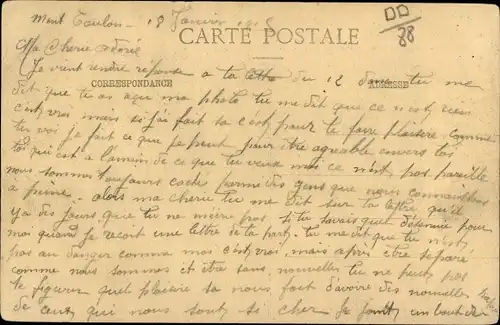 Mont Toulon - 18 Janvier 1915
DD
88
CARTE POSTALE
Ma Cherie adorée
Je vient rendre réponse a ta lettre du 12 dans tu me
CORRESPONDANCE
ADRESSE
dit que tu as reçu ma photo tu me dit que ce n'est rien
c'est vrai mais si j'ai fait sa c'est pour te faire plaisire comme
tu voi je fait ce que je peut pour être agreable envers toi
toi qui est a l'amein de ce que tu veux moi ce n'est pas pareille
nous sommes toujours caché des gens que nous connaissons
a peine. alors ma cherie tu me dit sur ta lettre qu'il
ya des jours que tu ne m'ecre pas. si tu savais quel pour
moi quand je reçoit une lettre de ta part. tu me dit que tu n'est
pas au danger comme moi c'est vrai mais apres être separe
comme nous sommes et être sans nouvelles tu ne peut pas
te figurer quel plaisire sa nous fait d'avoire des nouvelles
de ceux qui nous sont si cher Je joint un bout de